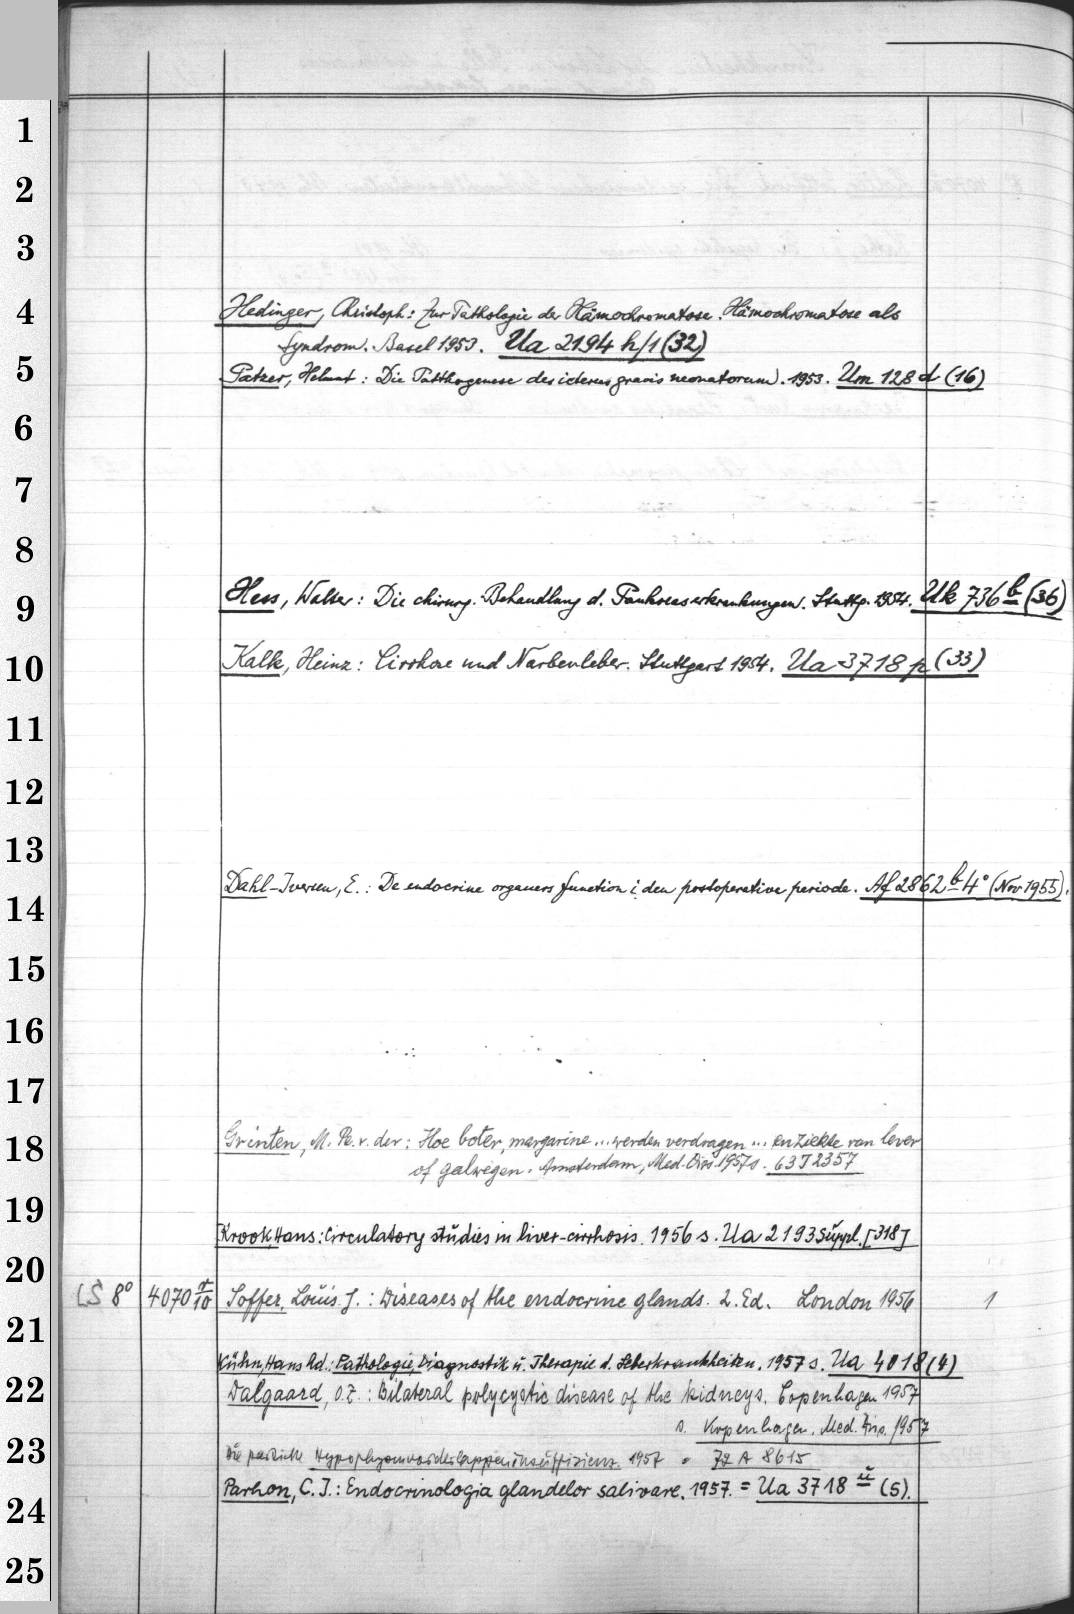 1
2
3
4
Hedinger, Christoph: Zur Pathologie der Hämochromatose. Hämochromatose als
Syndrom. Basel 1953. Ua 2194 h/1 (32)
5
Patzer, Helmut: Die Patthogenese des icterus gravis neonatorum. 1953. Um 128 d (16)
6
7
8
9
Hess, Walter: Die chirurg. Behandlung d. Pankreaserkrankungen. Stuttg. 1954. Uk 736 b (36)
10
Kalk, Heinz: Cirrhose und Narbenleber. Stuttgart 1954. Ua 3718 p (33)
11
12
13
Dahl-Iversen, E.: De endocrine organers function i den postoperative periode. Af 2862 b 4° (Nov 1955).
14
15
16
17
18
Grinten, M. v. der: Hoe boter, margarine ... werden verdragen ... en ziekte van lever
of galwegen. Amsterdam, Med. Diss. 1957 s. 63 J 2357
19
Krook, Hans: Circulatory studies in liver-cirrhosis. 1956 s. Ua 2193 Suppl. [318]
20
LS 8° 4070 r/10 Soffer, Louis J.: Diseases of the endocrine glands. 2. Ed. London 1956 1
21
Kühn, Hans Ad.: Pathologie, Diagnostik u. Therapie d. Leberkrankheiten. 1957 s. Ua 4018 (4)
22
Dalgaard, O.Z.: Bilateral polycystic disease of the kidneys. Copenhagen 1957
s. Kopenhagen. Med. Diss. 1957
23
Die partielle Hypophysenvorderlappeninsuffizienz. 1957 = Zz A 8615
Parhon, C.I.: Endocrinologia glandelor salivare. 1957. = Ua 3718 u (5).
24
25